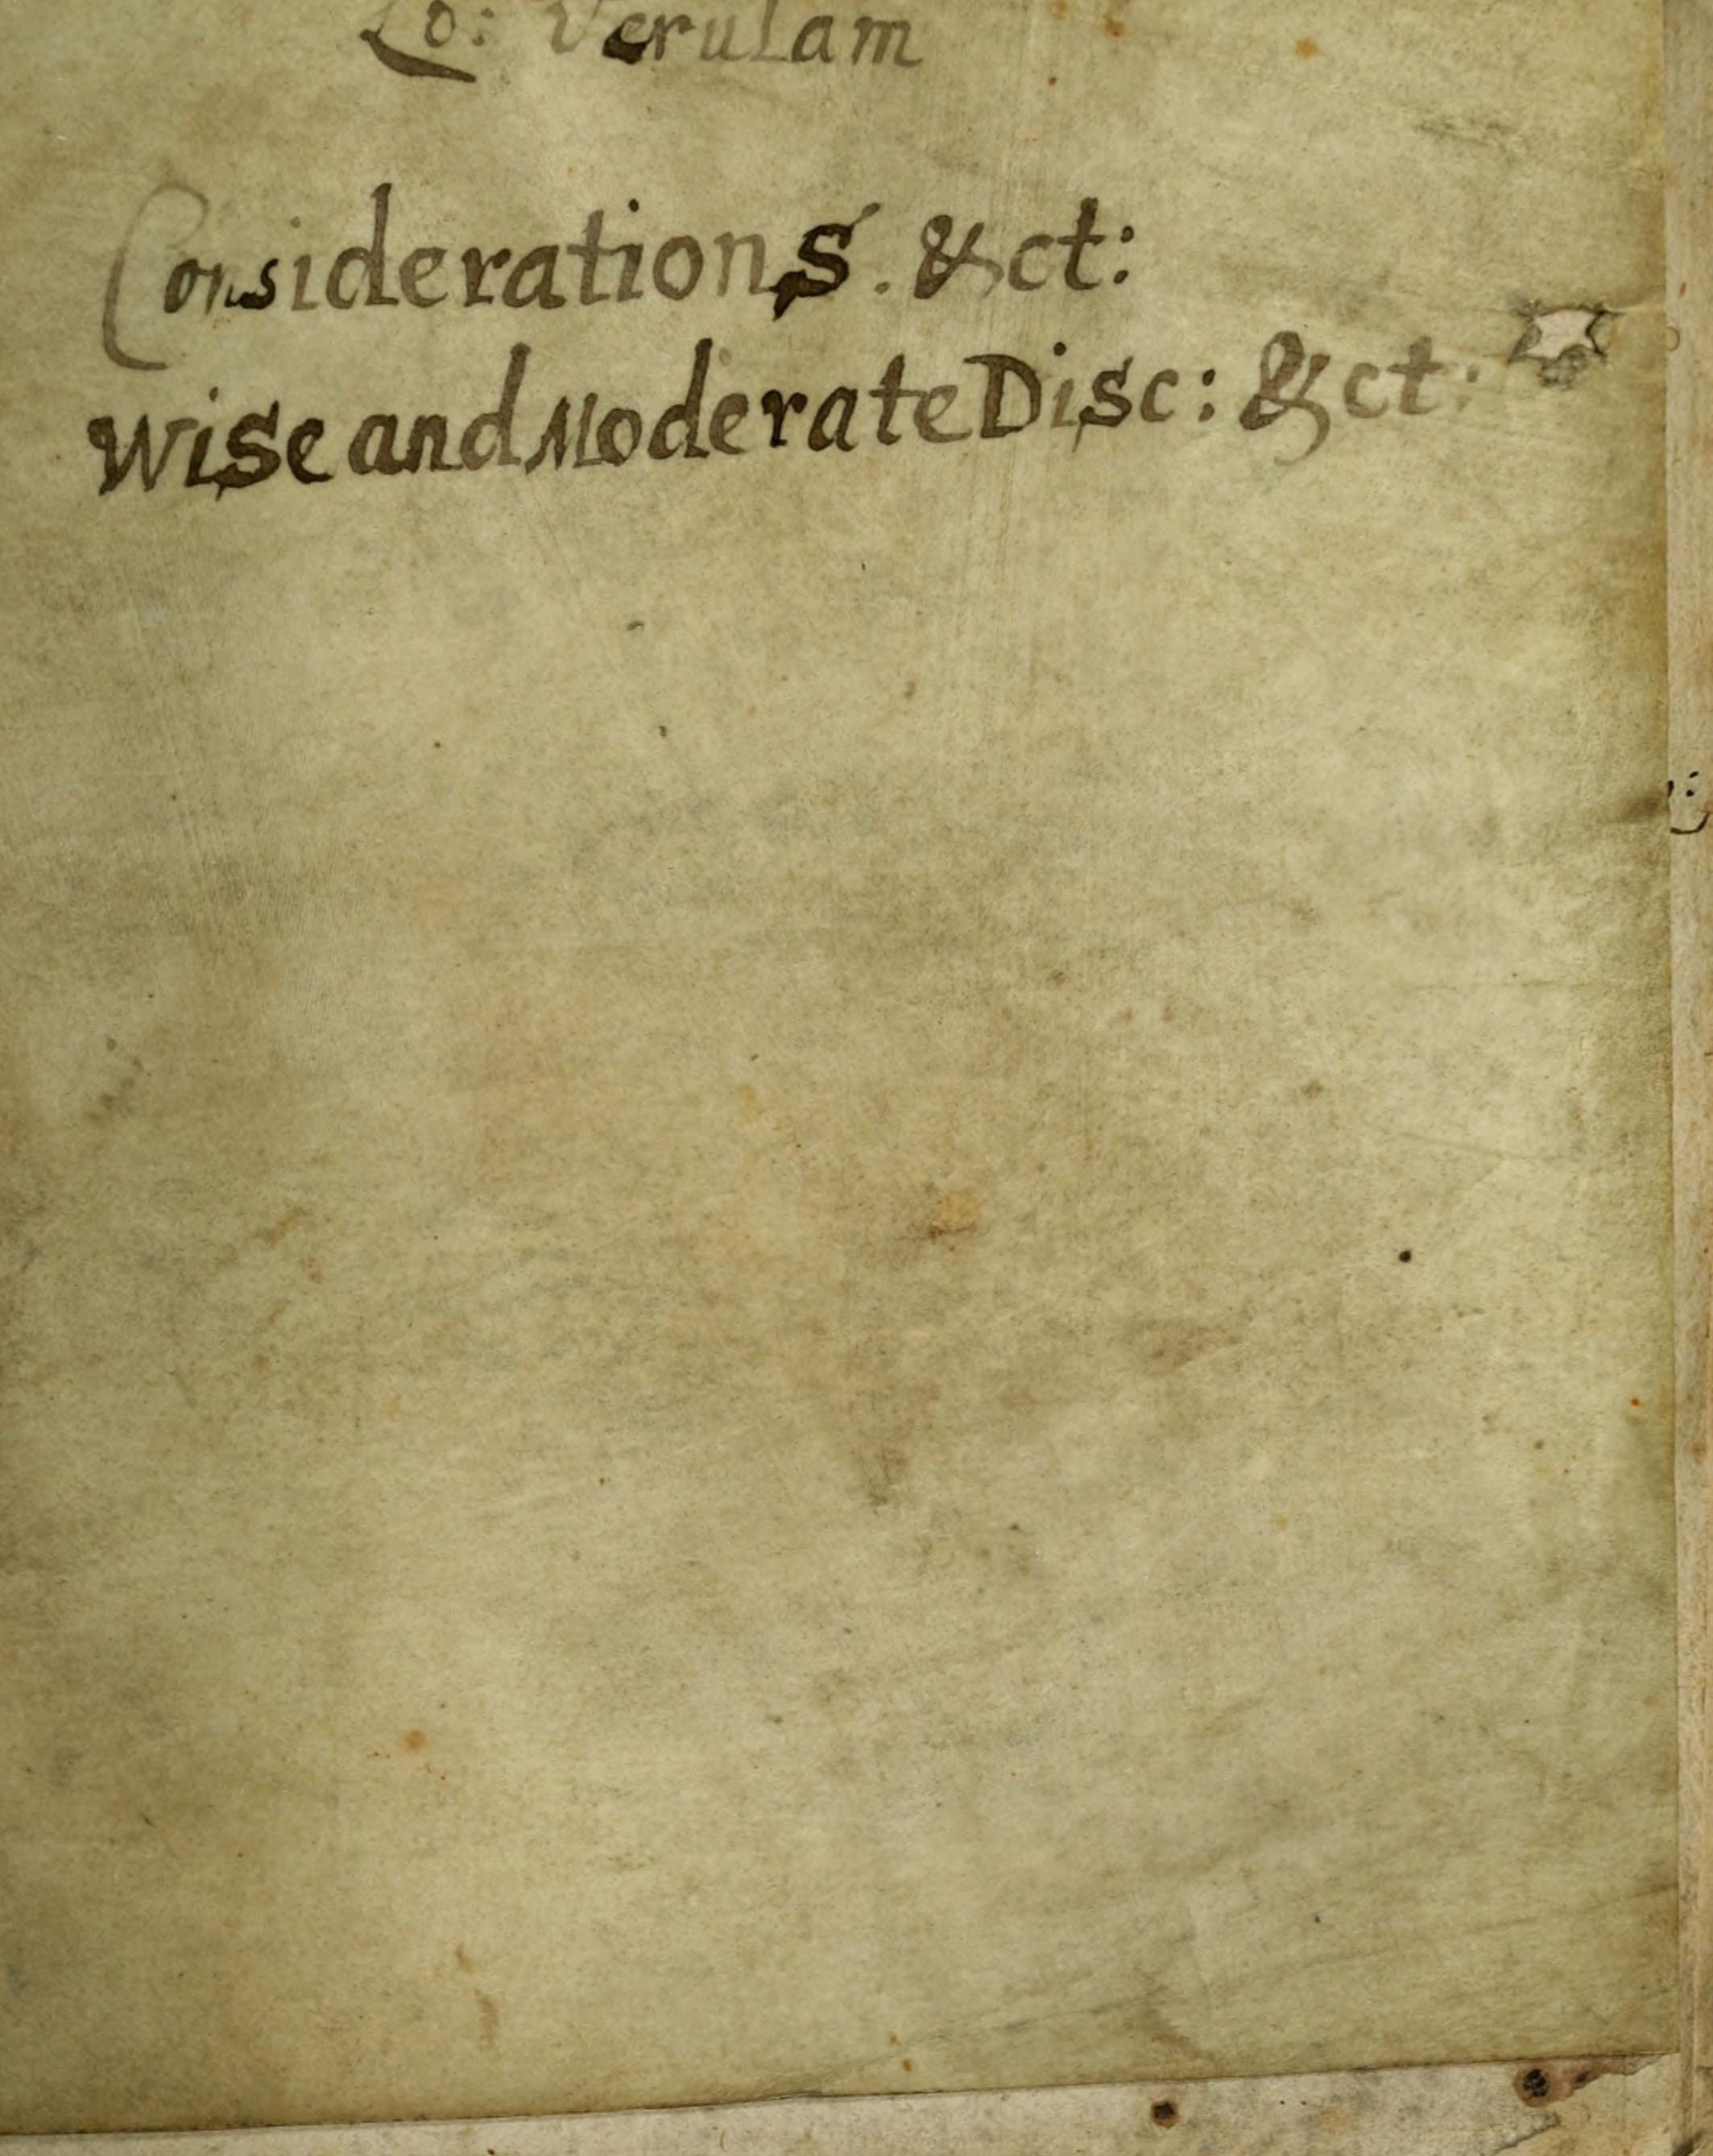 Lo: Verulam
Considerations. &ct:
Wise and Moderate Disc: &ct: